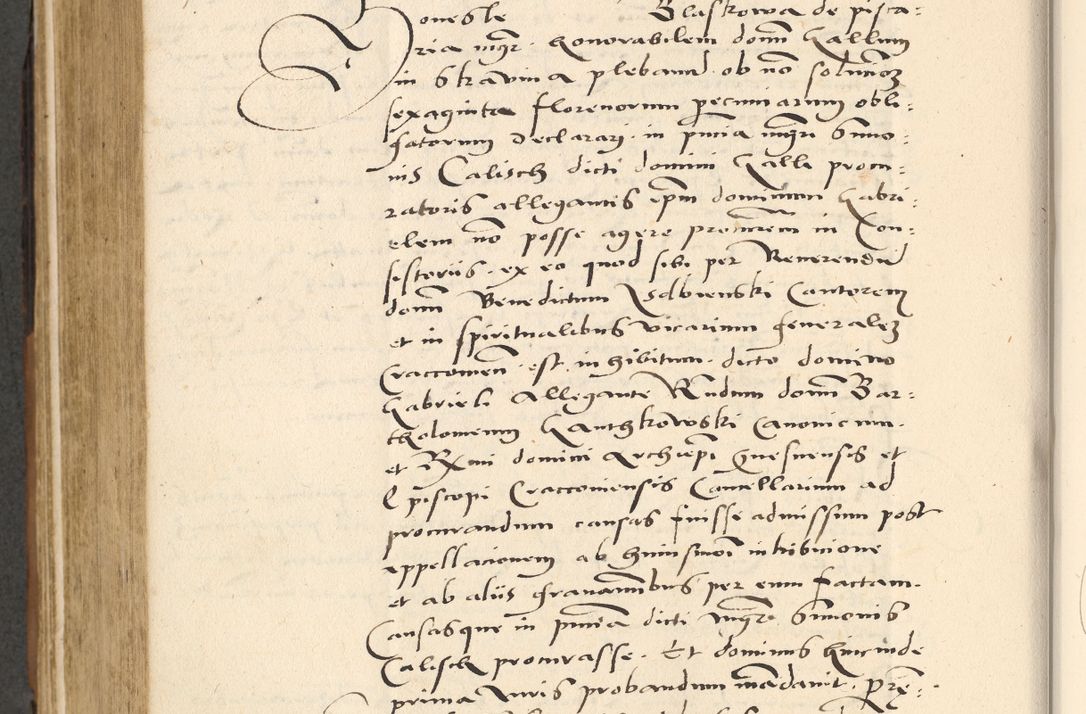 oneste Blaskowa de pisca:
ria mgr. honorabilem domi Gallum
in Skavina plebanu ob no soluciones
sexaginta florenorum pecuniarum obli:
gatorum declarari. in pntia mgri Simo:
nis Calisch dicti domini Galli procu:
ratoris allegantis ipm dominum Gabri:
elem no posse agere procurem in Con:
sistoriis. ex eo quod sibi per Reverendu
domi Benedictum Isdbienski Cantorem
et in spiritualibus vicarium generalem
Craccovien est inhibitum. dicto domino
Gabrieli allegante Rndum domi Bar:
tholomeum Ganthkowski Canonicum.
et Rxmi domini Archiepi Gnesnensis et
Episcopi Craccoviensis Cancellarium ad
procurandum causas fuisse admissum post
appellacionem ab huiusmoi inhibicione
et ab aliis gravaminibus per eum factam.
Causasque in pntia dicti mgri Simonis
Calisch procurasse. Et dominus hincinde
prima Iuris probandum mandavit.